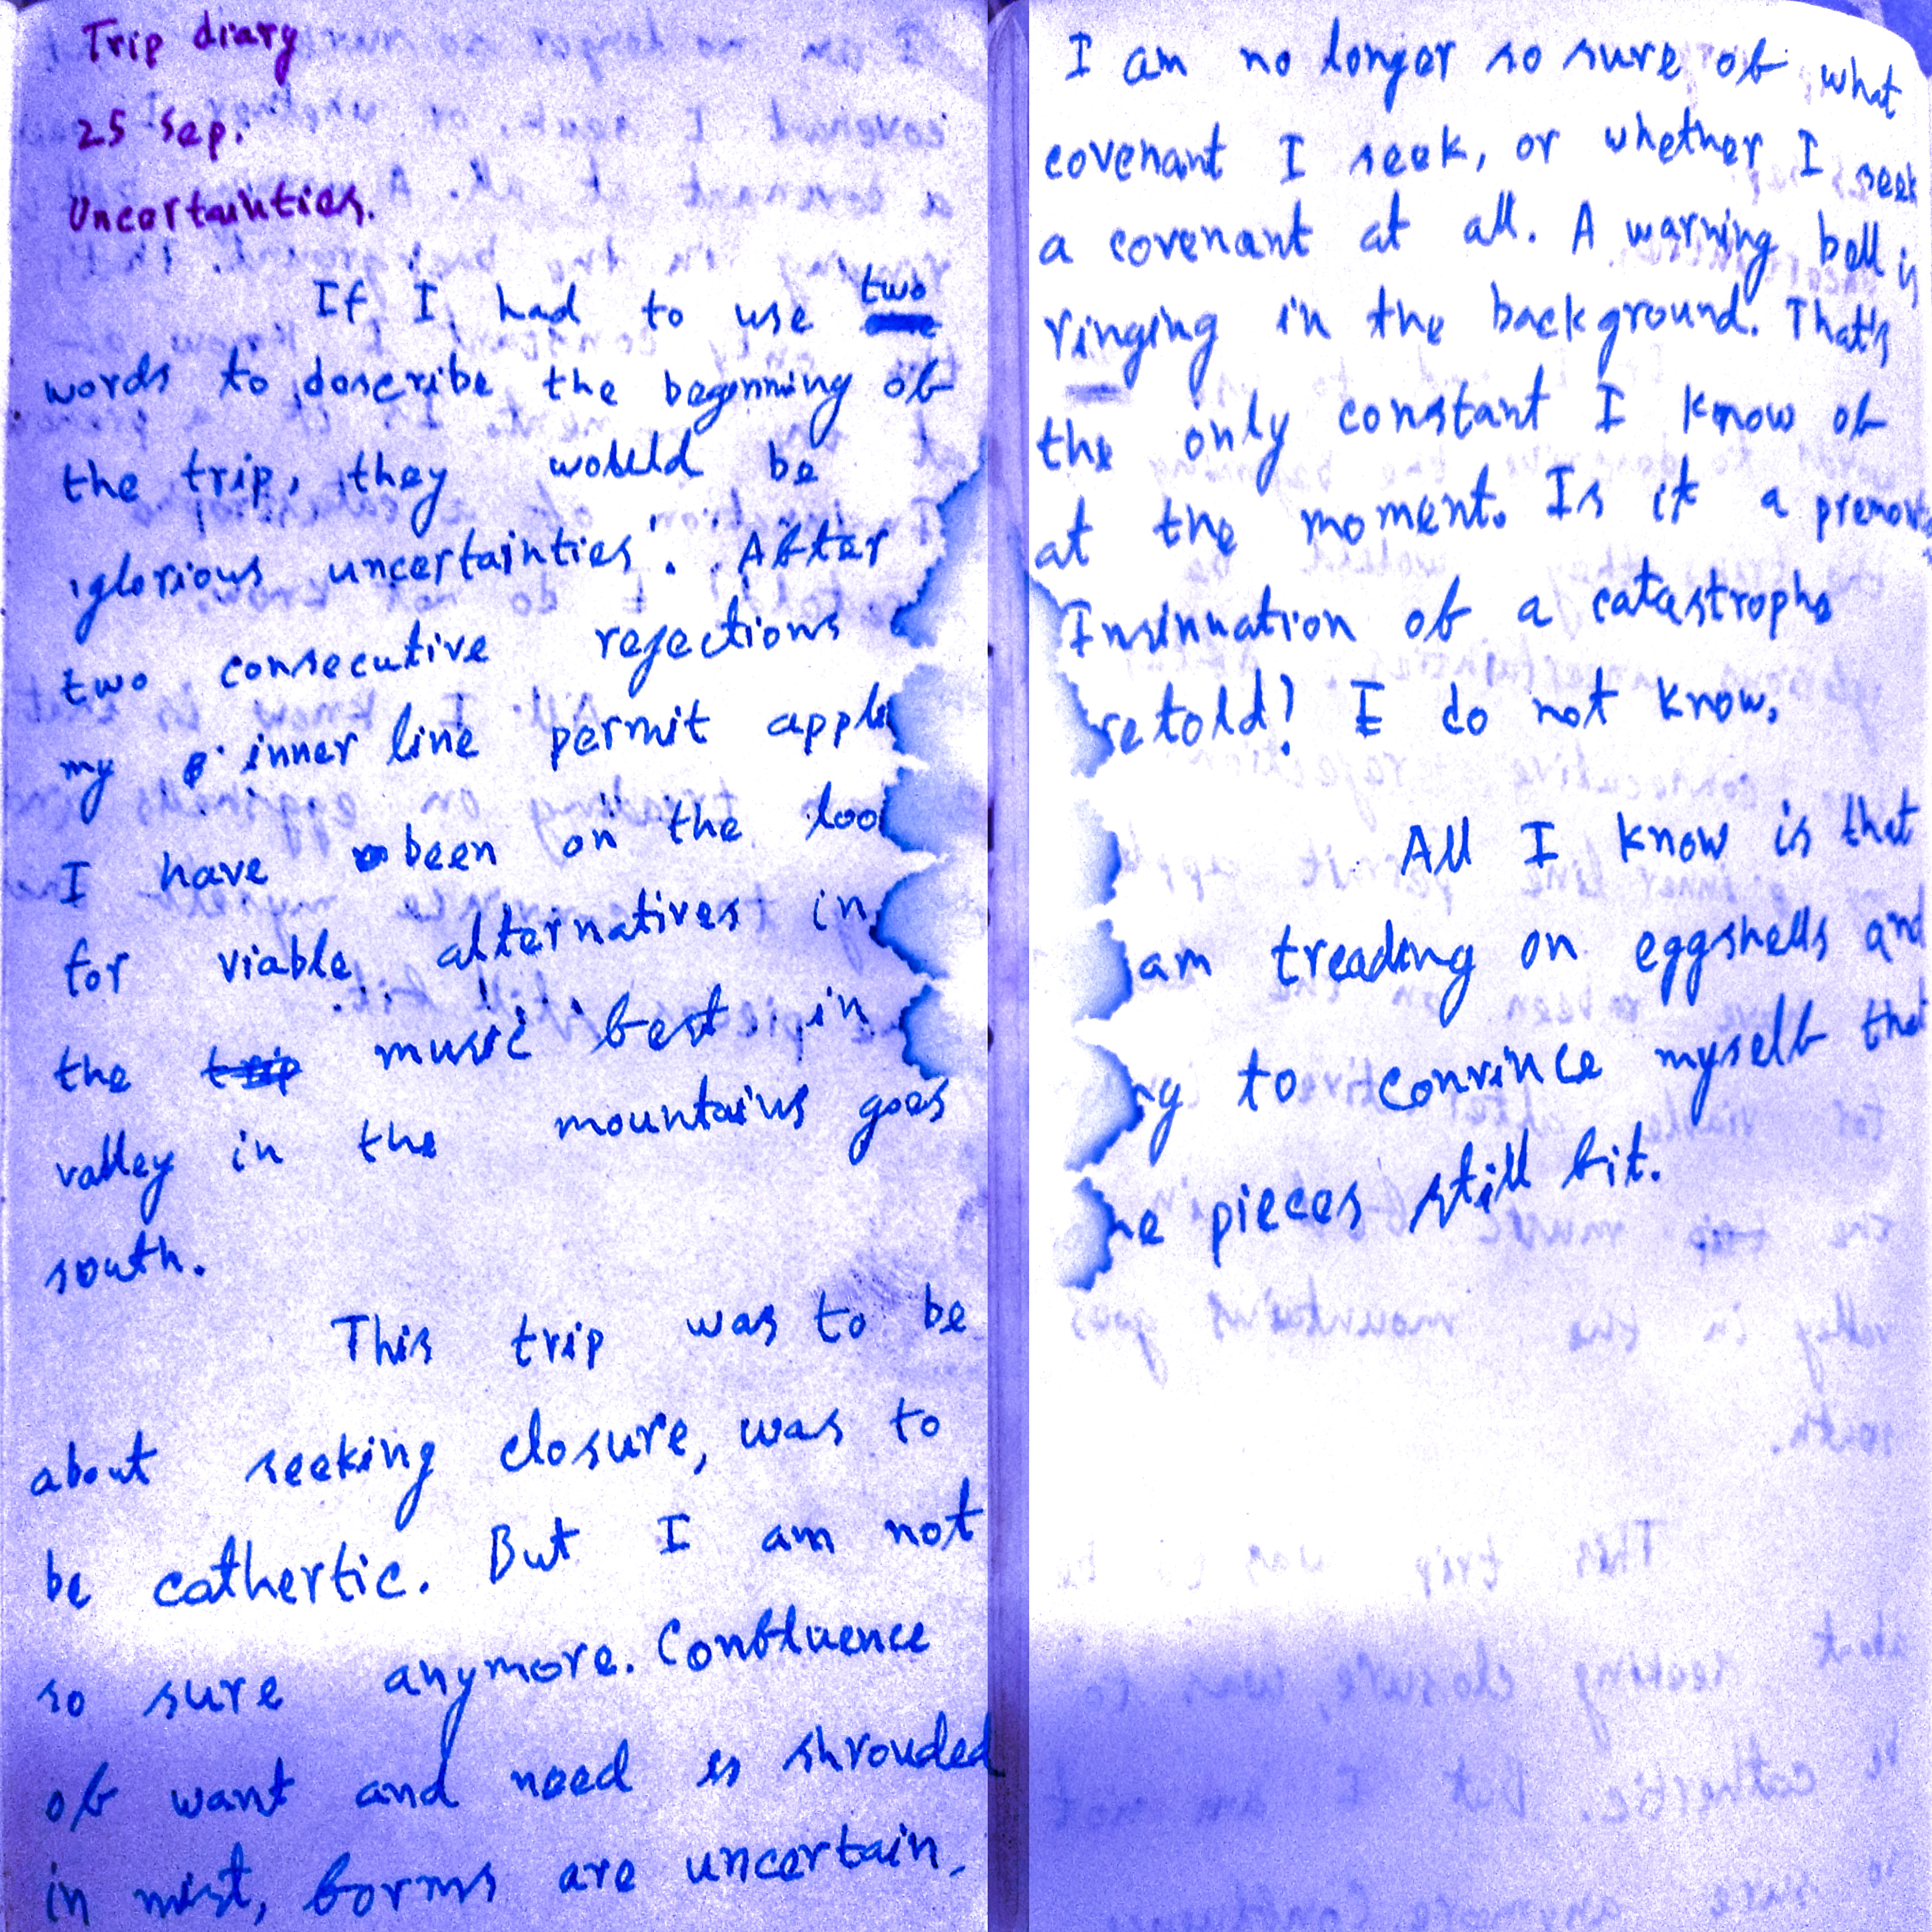 Trip diary
25 Sep.
Uncertainties.
If I had to use two
words to describe the beginning of
the trip, they would be
'glorious uncertainties'. After
two consecutive rejections
my inner line permit
I have been on the
for viable alternatives in
the music best in
valley in the mountains goes
south.
This trip was to be
about seeking closure, was to
be cathertic. But I am not
so sure anymore. Confluence
of want and need is shrouded
in mist, forms are uncertain.
I am no longer so sure of what
covenant I seek, or whether I seek
a covenant at all. A warning bell is
ringing in the background. That's
the only constant I know of
at the moment. Is it a
Insinuation of a catastrophe
retold? I do not know.
All I know is that
am treading on eggshells and
to convince myself that
pieces still fit.